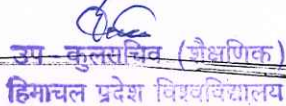 उप - कुलसचिव (शैक्षणिक)
हिमाचल प्रदेश विश्वविद्यालय